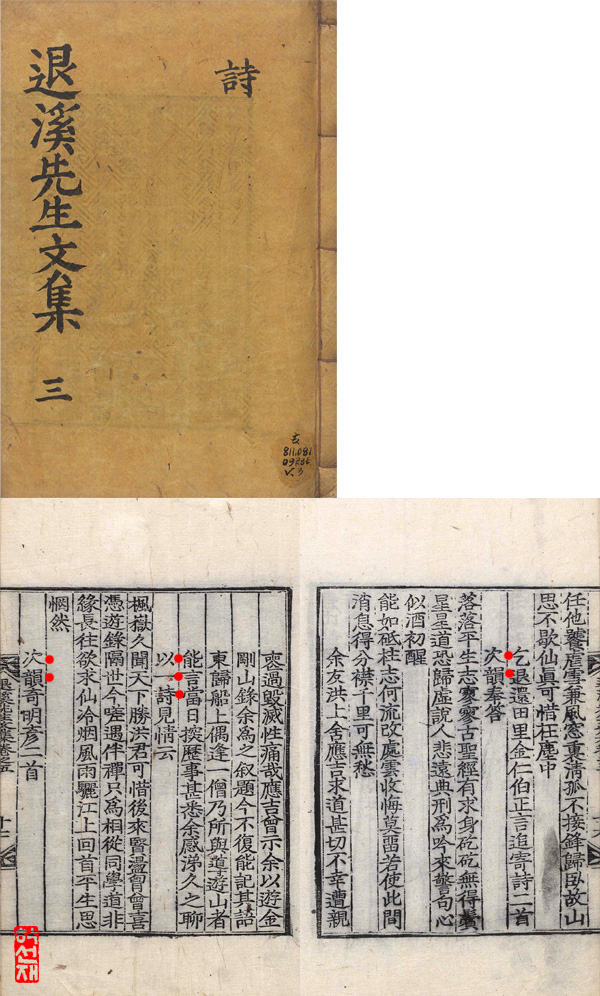 詩
退溪先生文集 三
811.081
v.3
任他饕虐雪兼風窓裏淸孤不接鋒歸臥故山
思不歇仙眞可惜枉塵中
乞退還田里金仁伯正言追寄詩二首
次韻奉答
落落平生志寥寥古聖經有求身矻矻無得鬢
星星道恐歸虛說人悲遠典刑爲吟來警句心
似酒初醒
能如砥柱志何流改處雲收悔莫留若使此間
消息得分襟千里可無愁
余友洪上舍應吉求道甚切不幸遭親
喪過毁滅性痛哉應吉曾示余以遊金
剛山錄余爲之叙題今不復能記其語
東歸船上偶逢一僧乃所與遊山者
能言當日探歷事甚悉余感涕久之聊
以一詩見情云
楓嶽久聞天下勝洪君可惜後來賢盪胸曾喜
憑遊錄隔世今嗟遇伴禪只爲相從同學道非
緣長往欲求仙冷烟風雨驪江上回首平生思
惘然
次韻奇明彦二首